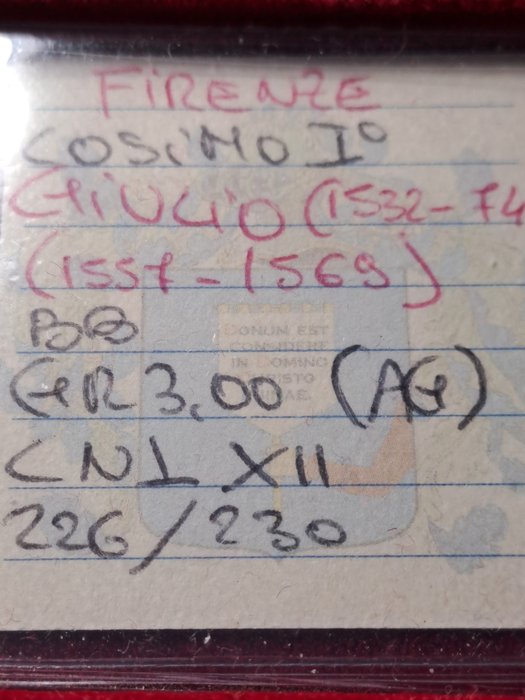 FIRENZE
COSIMO I°
GIULIO (1532-74
(1557-1569)
BB
GR 3,00 (AG)
CNI XII
226/230
DONUM EST
CONSIDERE
IN DOMINO